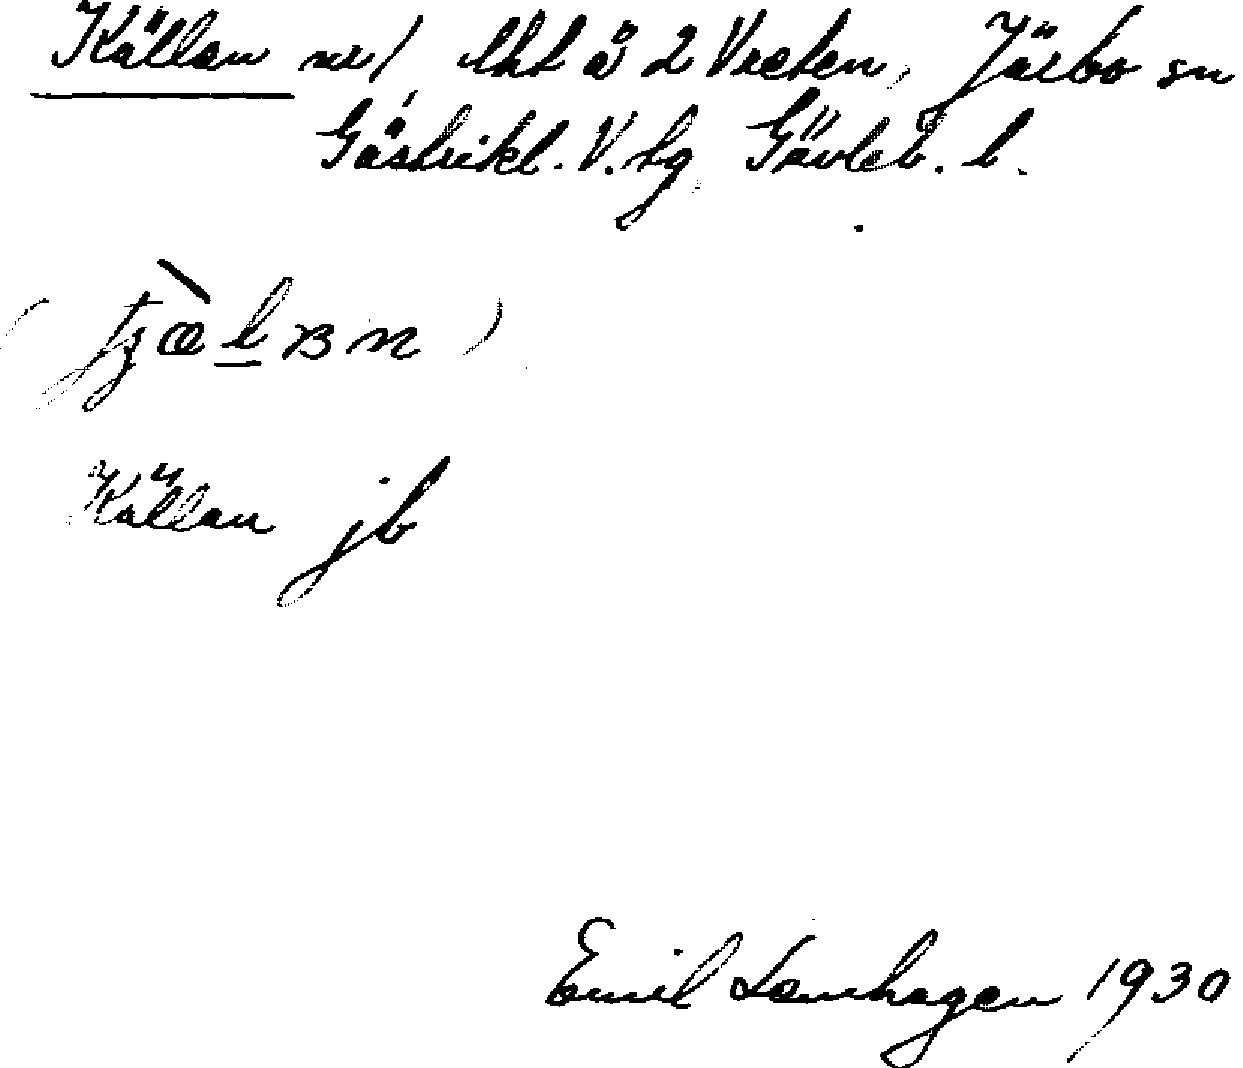 Källan nr 1, lht å 2 Vreten, Järbo sn
Gästrikl. V. hg Gävleb. l.
Källan jb
Emil Lannhagen 1930